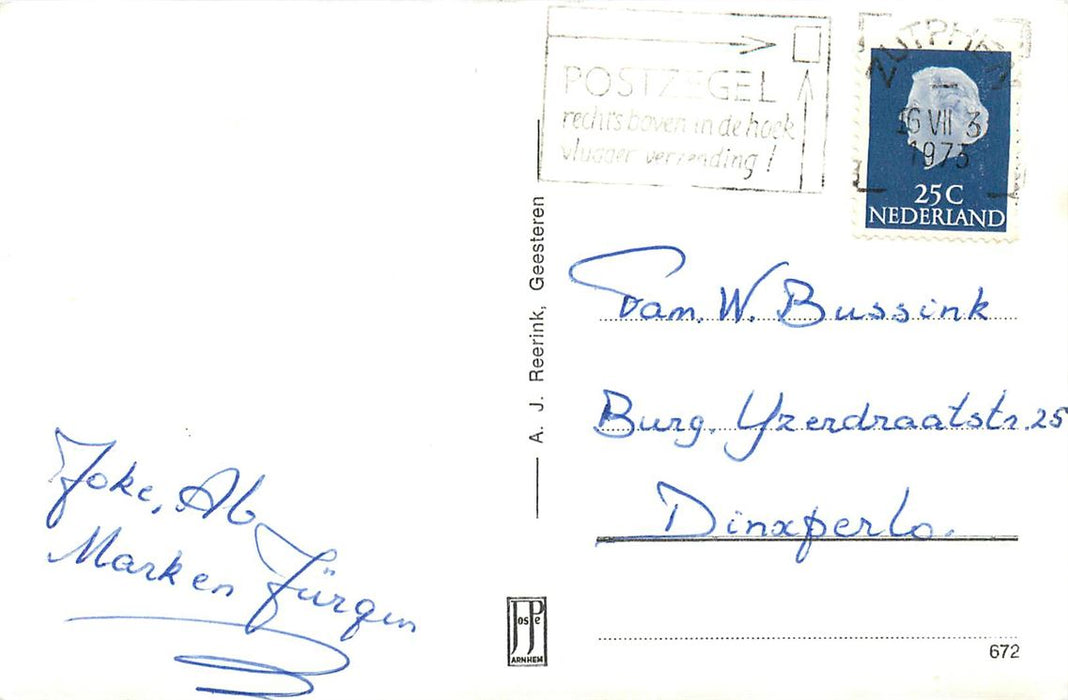 POSTZEGEL
rechts boven in de hoek
vlugger verzending!
ZUTPHEN
16 VII 3
1973
25C
NEDERLAND
A. J. Reerink, Geesteren
Fam. W. Bussink
Burg. Yzerdraatstr. 25
Dinxperlo.
Joke, Ab
Mark en Jürgen
JosPe
ARNHEM
672